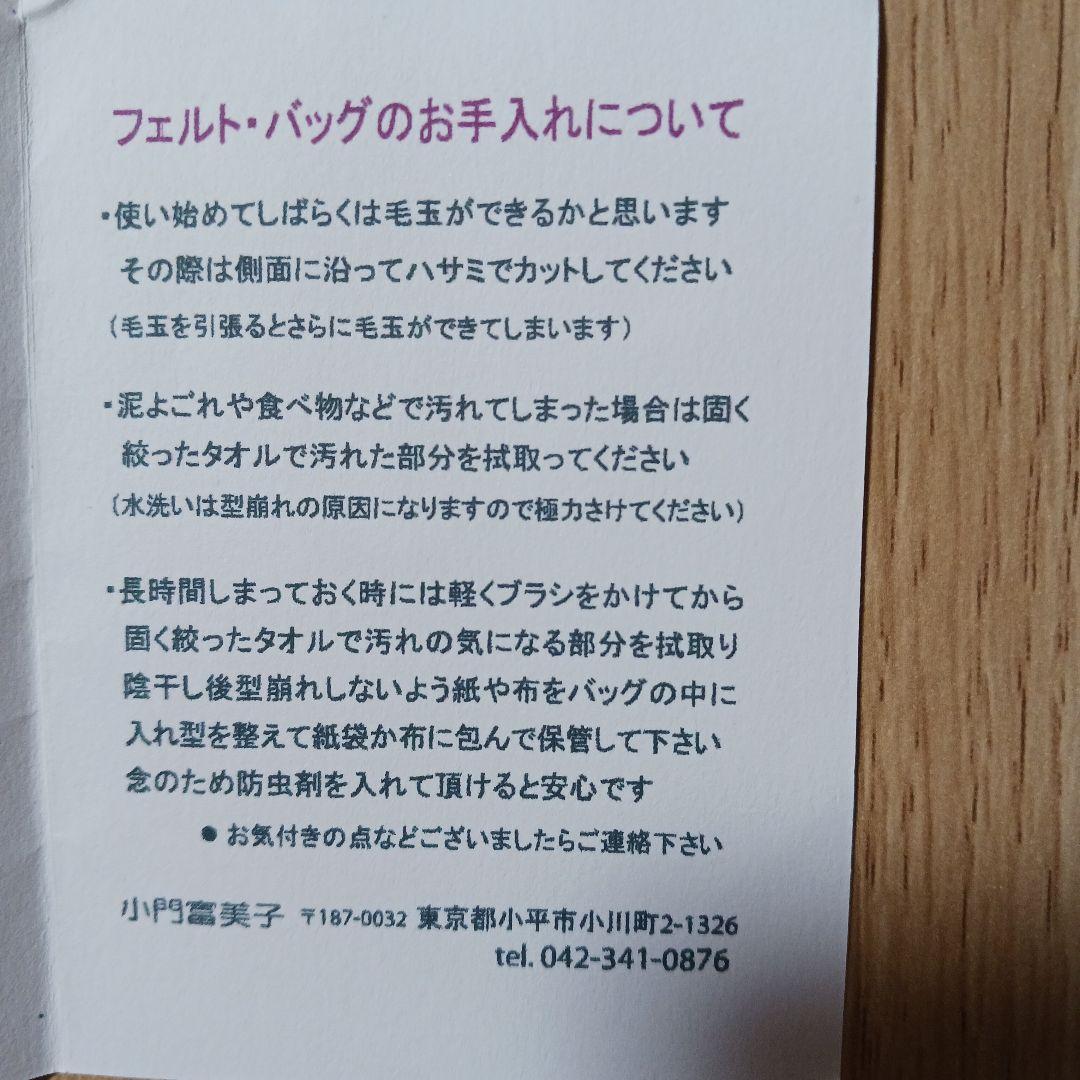 フェルト・バッグのお手入れについて
・使い始めてしばらくは毛玉ができるかと思います
その際は側面に沿ってハサミでカットしてください
（毛玉を引張るとさらに毛玉ができてしまいます）
・泥よごれや食べ物などで汚れてしまった場合は固く
絞ったタオルで汚れた部分を拭取ってください
（水洗いは型崩れの原因になりますので極力さけてください）
・長時間しまっておく時には軽くブラシをかけてから
固く絞ったタオルで汚れの気になる部分を拭取り
陰干し後型崩れしないよう紙や布をバッグの中に
入れ型を整えて紙袋か布に包んで保管して下さい
念のため防虫剤を入れて頂けると安心です
●お気付きの点などございましたらご連絡下さい
小門富美子 〒187-0032 東京都小平市小川町2-1326
tel. 042-341-0876